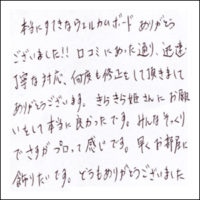 本当にすてきなウェルカムボード ありがとう
ございました!! 口コミにあった通り、迅速
丁寧な対応、何度も修正をして頂きまして
ありがとうございます。きらきら姫さんにお願
いをして本当に良かったです。みんなそっくり
でさすがプロって感じです。早くお部屋に
飾りたいです。どうもありがとうございました